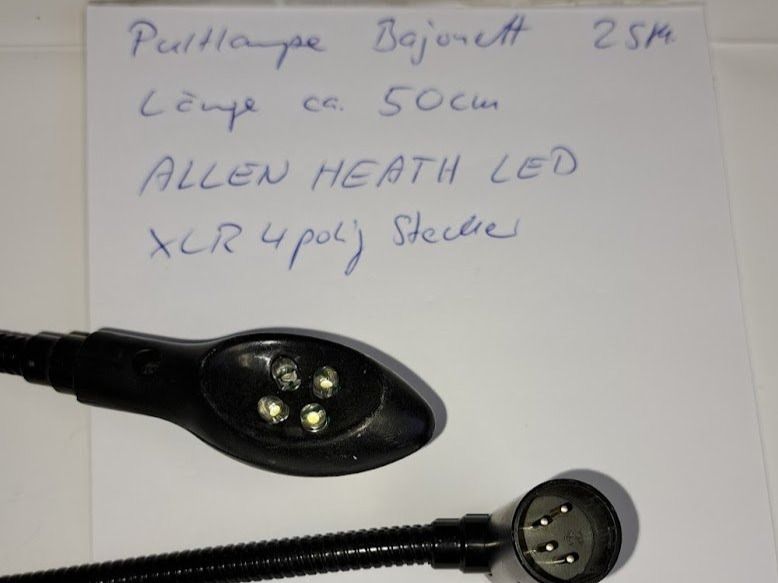 Pultlampe Bajonett 2 Stk.
Länge ca. 50cm
ALLEN HEATH LED
XLR 4polig Stecker